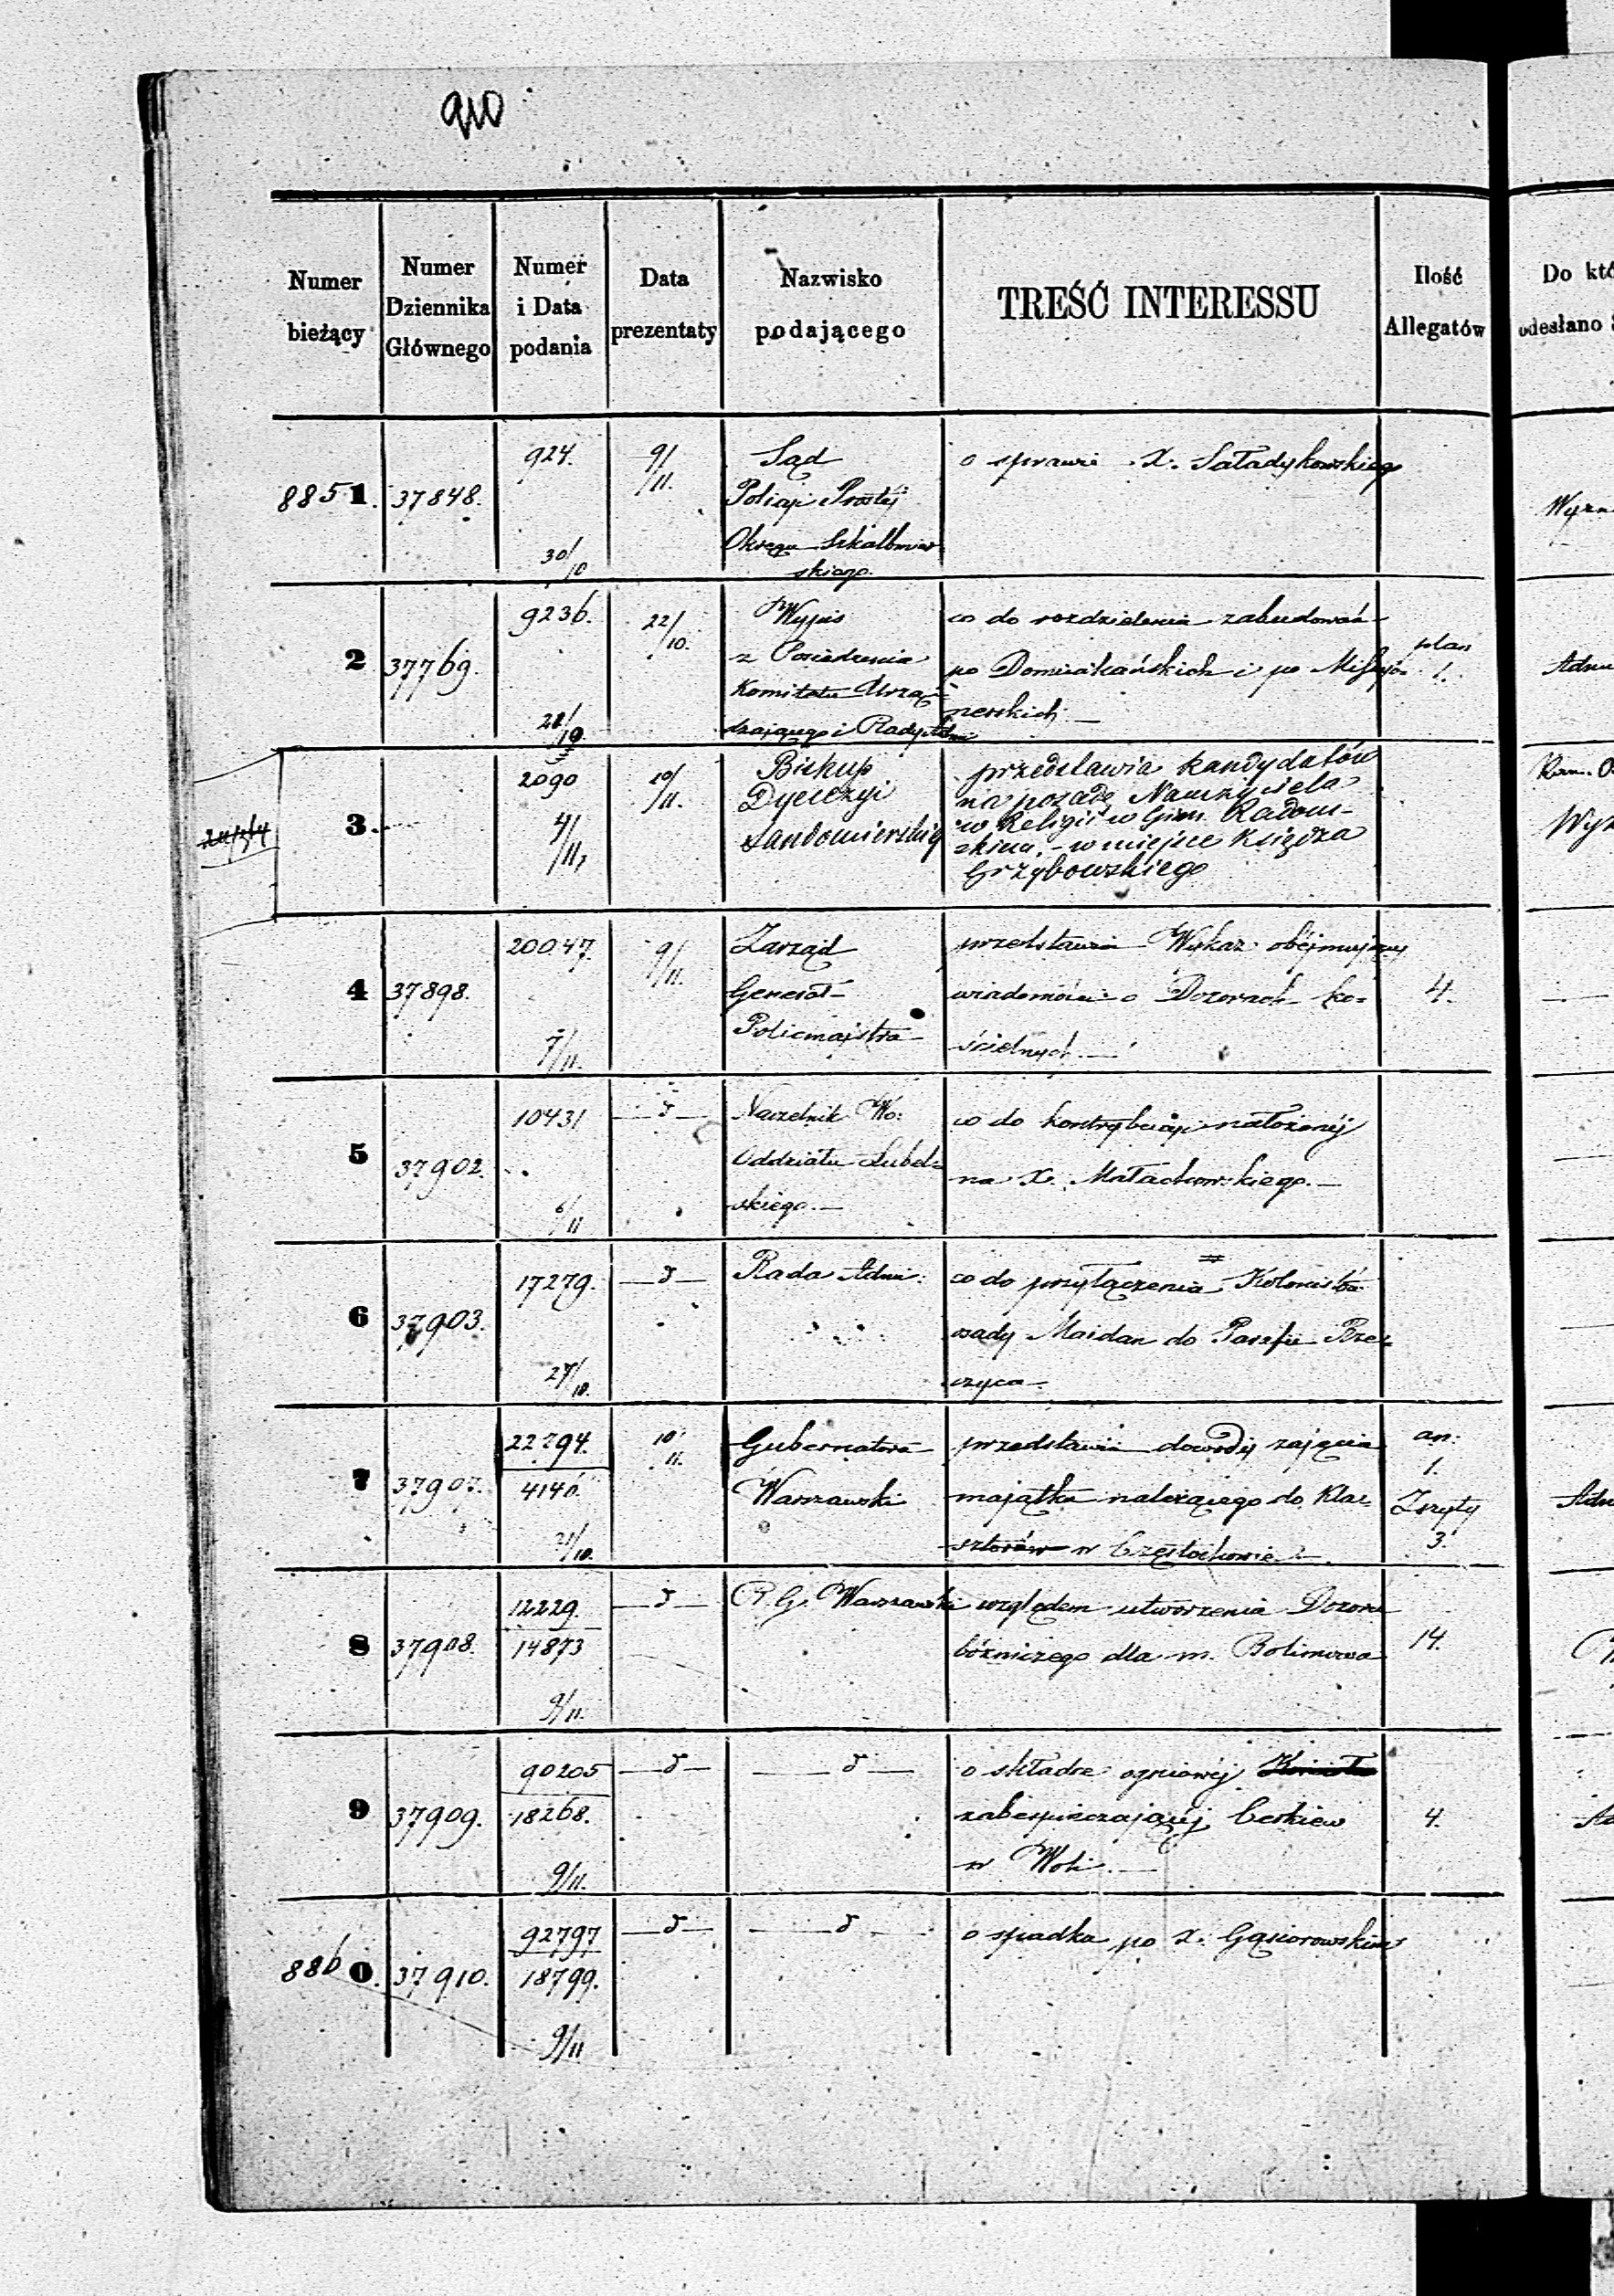 910
Numer bieżący
Numer Dziennika Głównego
Numer i Data podania
Data prezentaty
Nazwisko podającego
TREŚĆ INTERESSU
Ilość Allegatów
Do któ
odesłano
8851. 37848.
924.
30/10
9/11.
Sąd
Policyi Prostéj
Okręgu Szkalbmier
skiego.
o sprawie X. Saładykowskiego
Wyzn
2 37769.
9236.
22/10.
Wypis
z Posiedzenia
Komitetu Urzą=
dzającego i Rady Adm
co do rozdzielenia zabudowań
po Dominikańskich i po Missyo=
nerskich.
plan
1.
Adm
3.
2090
4/11,
10/11.
Biskup
Dyecezyi
Sandomierskiej
przedstawia kandydatów
na posadę Nauczyciela
w Religii w Gim. Radom-
skim, - w miejsce Księdza
Grzybowskiego
Wyz
4 37898.
20047.
7/11.
9/11.
Zarząd
Generał-
Policmajstra
przedstawia Wykaz obejmujący
wiadomości o Dozorach ko=
ścielnych.
4.
5 37902.
10431
6/11
Naczelnik Wo:
Oddziału Lubel=
skiego.
co do kontrybucyi nałożonéj
na X. Małachowskiego.
6 37903.
17279.
27/10.
Rada Adm:
co do przyłączenia Kolonistów
osady Maidan do Parafii Rze=
czyca
7 37907.
22794.
4146.
21/10.
10/11.
Gubernator
Warszawski
przedstawia dowody zajęcia
majątku należącego do Kla=
sztorów w Częstochowie
an:
1.
Zszyty
3.
Adm
8 37908.
12229.
14873
9/11.
R. G. Warszawski
względem utworzenia Dozoru
bóżniczego dla m. Bolimowa
14.
9 37909.
90205
18268.
9/11.
o składce ogniowéj
zabespieczającéj Cerkiew
w Woli.
4.
8860. 37910.
92797
18799.
9/11
o spadku po X. Gąsiorowskim